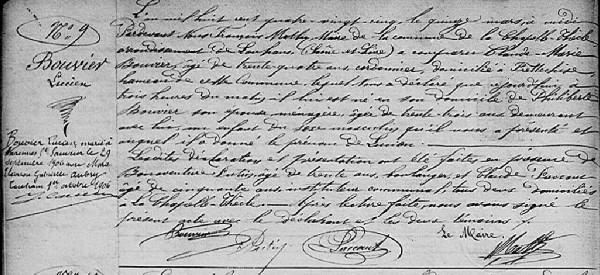 No. 9
Bouvier
Lucien
Bouvier Lucien marié à
Varennes St Sauveur le 29
septembre 1906 avec Marie
Gabrielle Aubry
1er octobre 1906
L'an mil huit cent quatre vingt cinq le quinze mars, à midi
Pardevant Nous François Mathy Maire de la commune de la Chapelle Thècle
arrondissement de Louhans (Saône et Loire) a comparu Claude Marie
Bouvier, âgé de trente quatre ans cordonnier, domicilié à
hameau de cette Commune, lequel nous a déclaré que aujourd'hui à
trois heures du matin, il lui est né en son domicile de Philiberte
Bouvier son épouse ménagère, âgée de trente trois ans demeurant
avec lui, un enfant du sexe masculin qu'il nous a présenté et
auquel il a donné le prénom de Lucien.
Lesdites déclaration et présentation ont été faites en présence de
Bonaventure Petit, âgé de trente ans, boulanger, et Claude
âgé de cinquante ans, instituteur communal tous deux domiciliés
à la Chapelle Thècle. Après lecture faite, nous avons signé le
présent acte avec le déclarant et les deux témoins.
Bouvier
Petit
Le Maire